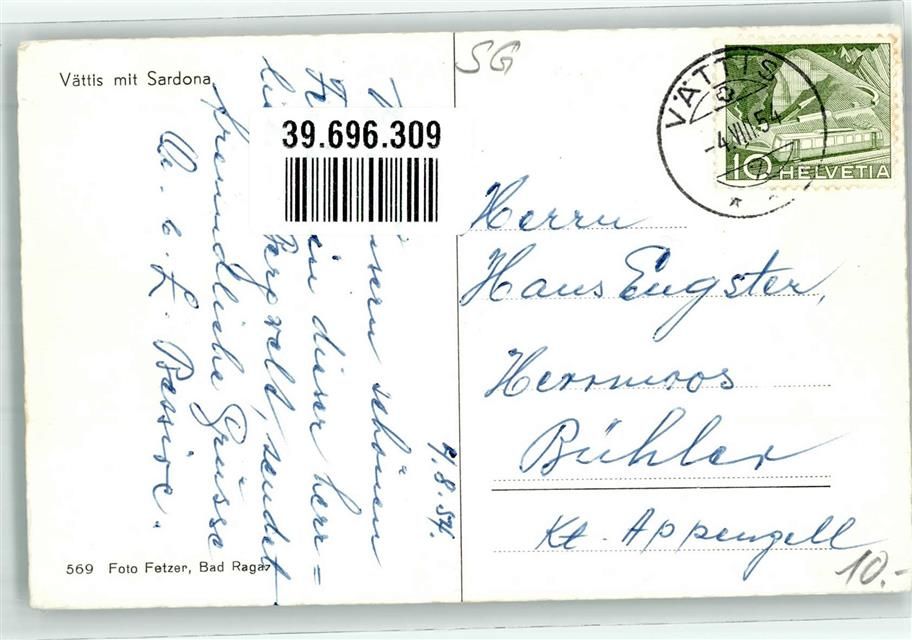 Vättis mit Sardona.
SG
VÄTTIS
-4.VIII.54
10 HELVETIA
39.696.309
4.8.54.
schönen
in dieser herr=
Bergwelt, sendet
freundliche Grüsse
Herrn
Hans Eugster,
Herrmoos
Bühler
Kt. Appenzell
10.-
569 Foto Fetzer, Bad Ragaz